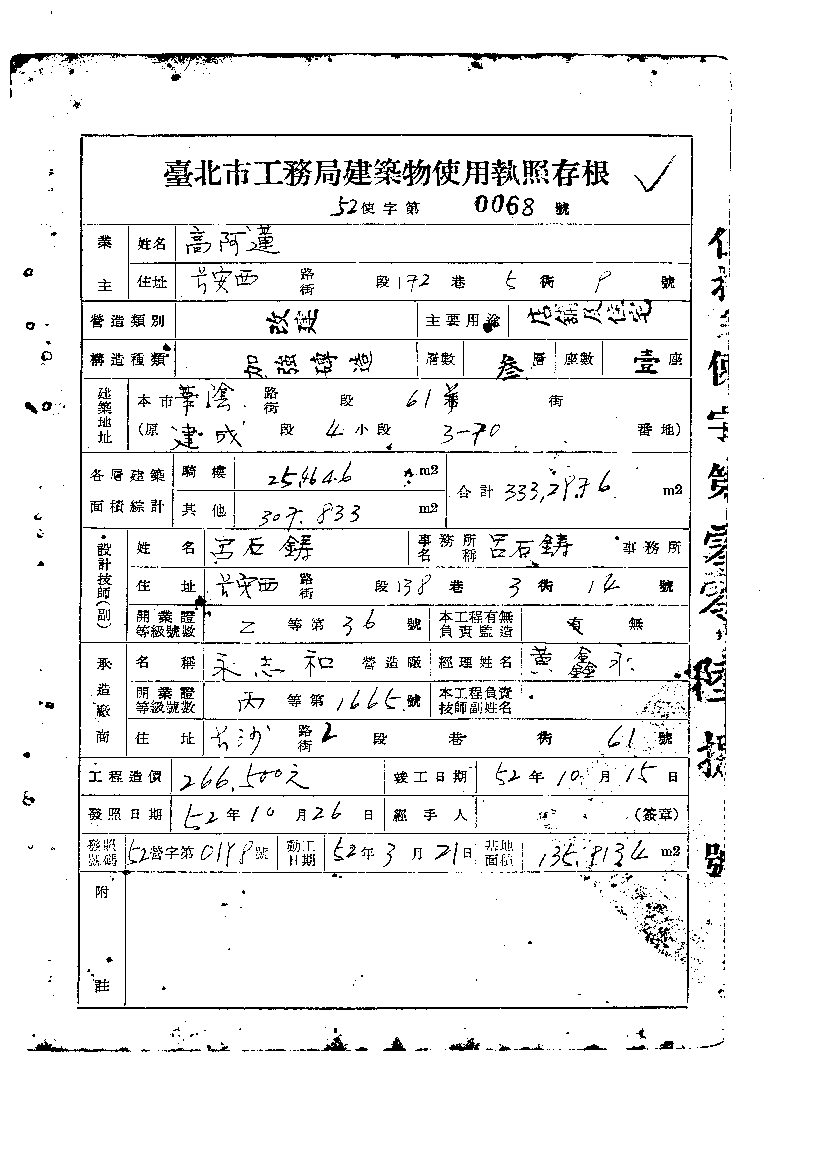 臺北市工務局建築物使用執照存根
52使字第 0068 號
業主 姓名 高阿蓮
住址 長安西 路街 段 172 巷 5 衖 9 號
營造類別 改建 主要用途 店舖及住宅
構造種類 加強磚造 層數 叁層 座數 壹座
建築地址 本市 華陰 路街 段 61 巷 衖
(原 建成 段 4 小段 3-70 番地)
各層建築面積綜計 騎樓 25.4646 m2 合計 333.2976 m2
其他 307.833 m2
設計技師(副) 姓名 呂石鑄 事務所名稱 呂石鑄 事務所
住址 長安西 路街 段 138 巷 3 衖 14 號
開業證等級號數 乙 等第 36 號 本工程有無負責監造 有 無
承造廠商 名稱 永志和 營造廠 經理姓名 黃鑫永
開業證等級號數 丙 等第 1665 號 本工程負責技師副姓名
住址 長沙 路街 2 段 巷 衖 61 號
工程造價 266,500元 竣工日期 52年10月15日
發照日期 52年10月26日 經手人 (簽章)
發照號碼 52營字第 號 動工日期 52年3月21日 基地面積 135.8134 m2
附註
使字第零零陸捌號